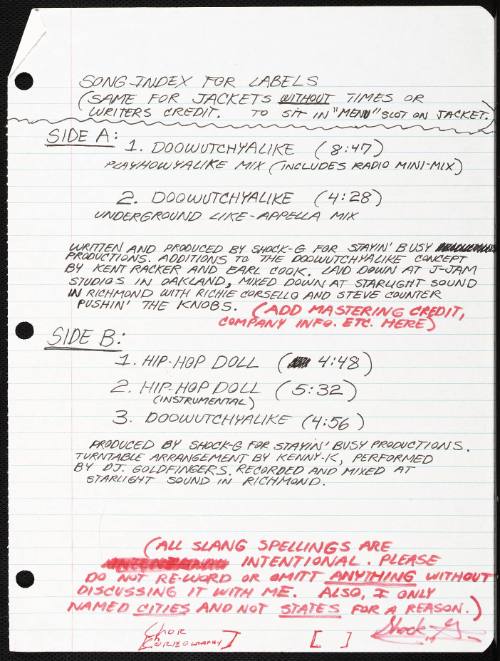 SONG-INDEX FOR LABELS
(SAME FOR JACKETS WITHOUT TIMES OR
WRITERS CREDIT. TO SIT IN "MENU" SLOT ON JACKET.)
SIDE A:
1. DOOWUTCHYALIKE (8:47)
PLAYHOWYALIKE MIX (INCLUDES RADIO MINI-MIX)
2. DOOWUTCHYALIKE (4:28)
UNDERGROUND LIKE-APPELLA MIX
WRITTEN AND PRODUCED BY SHOCK-G FOR STAYIN' BUSY
PRODUCTIONS. ADDITIONS TO THE DOOWUTCHYALIKE CONCEPT
BY KENT RACKER AND EARL COOK. LAID DOWN AT J-JAM
STUDIOS IN OAKLAND, MIXED DOWN AT STARLIGHT SOUND
IN RICHMOND WITH RICHIE CORSELLO AND STEVE COUNTER
PUSHIN' THE KNOBS. (ADD MASTERING CREDIT,
COMPANY INFO. ETC. HERE)
SIDE B:
1. HIP-HOP DOLL (4:48)
2. HIP-HOP DOLL (5:32)
(INSTRUMENTAL)
3. DOOWUTCHYALIKE (4:56)
PRODUCED BY SHOCK-G FOR STAYIN' BUSY PRODUCTIONS.
TURNTABLE ARRANGEMENT BY KENNY-K, PERFORMED
BY DJ. GOLDFINGERS. RECORDED AND MIXED AT
STARLIGHT SOUND IN RICHMOND.
(ALL SLANG SPELLINGS ARE
INTENTIONAL. PLEASE
DO NOT RE-WORD OR OMITT ANYTHING WITHOUT
DISCUSSING IT WITH ME. ALSO, I ONLY
NAMED CITIES AND NOT STATES FOR A REASON.)
Shock-G.
[ ]